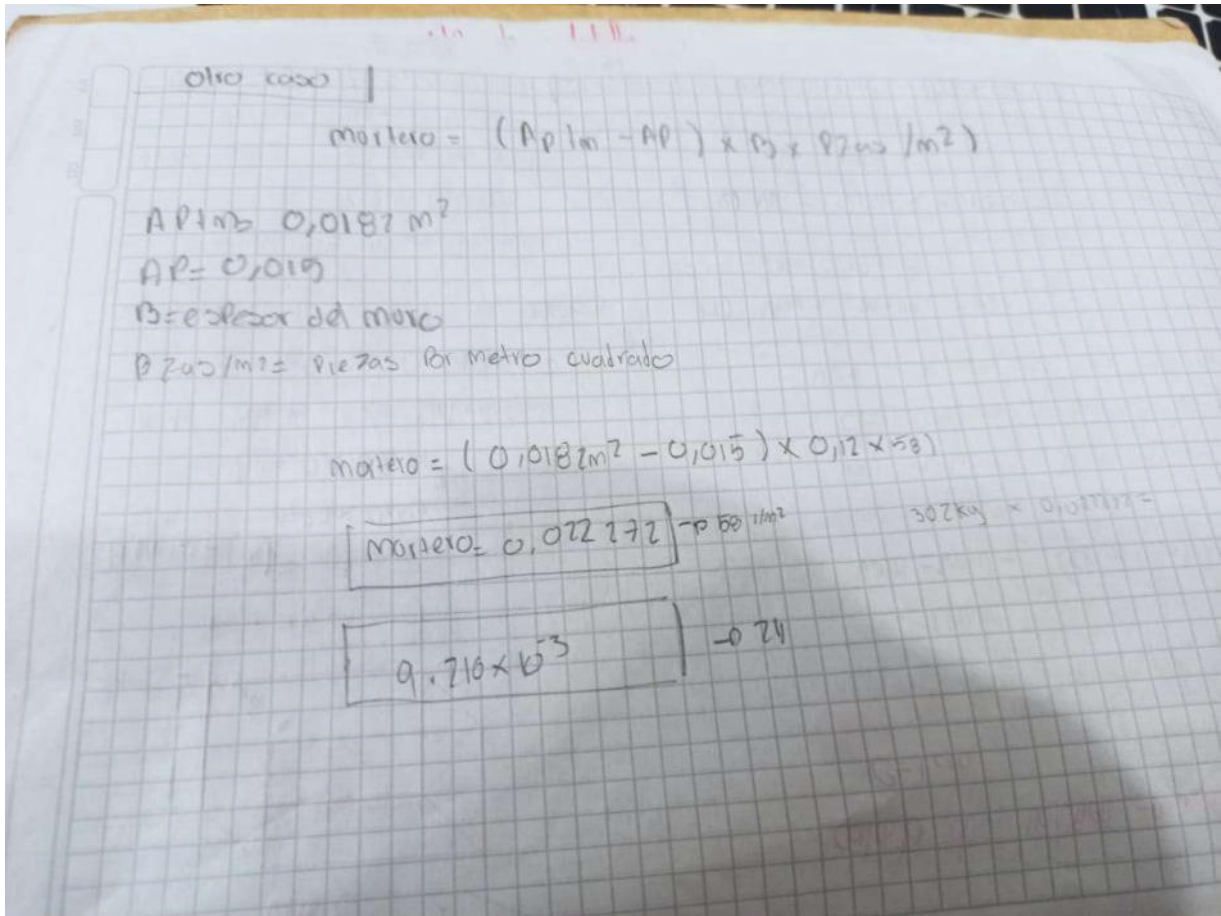 otro caso
mortero = (Ap+m - AP) x B x Pzas/m²)
AP+m= 0,0182 m²
AP= 0,015
B= espesor del muro
Pzas/m²= Piezas Por metro cuadrado
mortero = (0,0182m² - 0,015) x 0,12 x 58)
mortero= 0,022272 → 58 1/m²
302kg x 0,022272 =
9.216x10-3 → 24